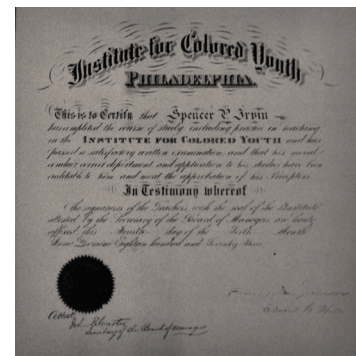 Institute for Colored Youth
PHILADELPHIA.
This is to Certify that Spencer P. Irvin
has completed the course of study, including practice in teaching
in the INSTITUTE FOR COLORED YOUTH and has
passed a satisfactory written examination, and that his moral
conduct, correct deportment and application to his studies have been
creditable to him and merit the approbation of his Preceptors.
In Testimony whereof
the signatures of the Teachers with the seal of the Institute
attested by the Secretary of the Board of Managers are hereby
affixed this day of the Month
Anno Domini Eighteen hundred and Seventy three.
Attest:
Secretary of the Board of Managers